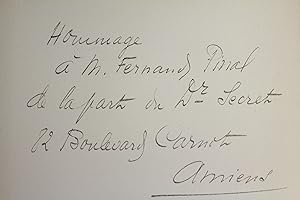 Hommage
à M. Fernand Pinal
de la part du Dr. Secret
12 Boulevard Carnot
Amiens